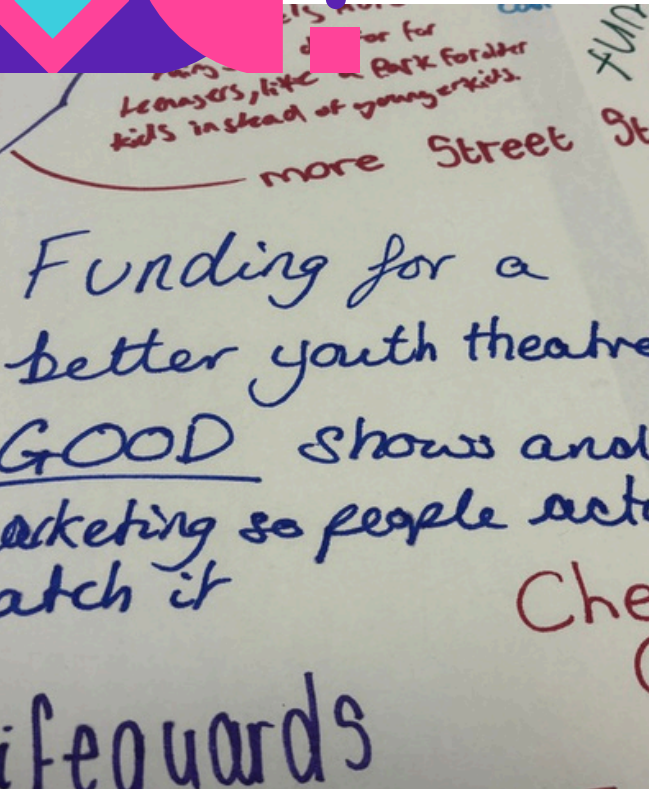 for
teenagers, like a Park for older
kids instead of younger kids.
more Street St
fun
Funding for a
better youth theatre
GOOD shows and
arketing so people actu
atch it
Che
ifeguards